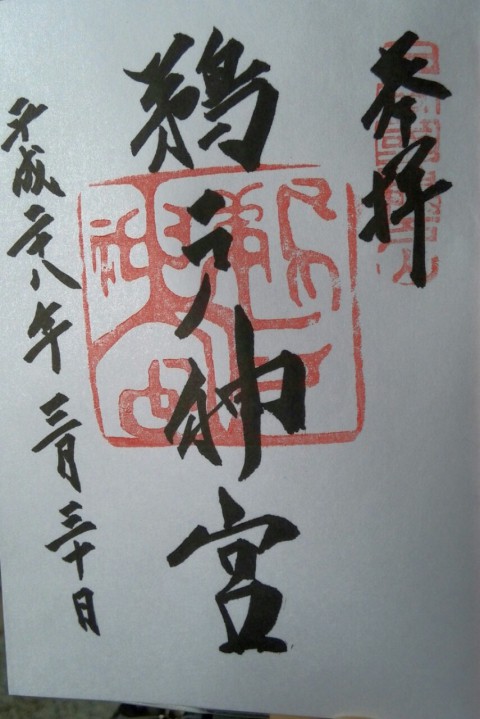 奉拝
鵜戸神宮
平成二十八年三月三十日